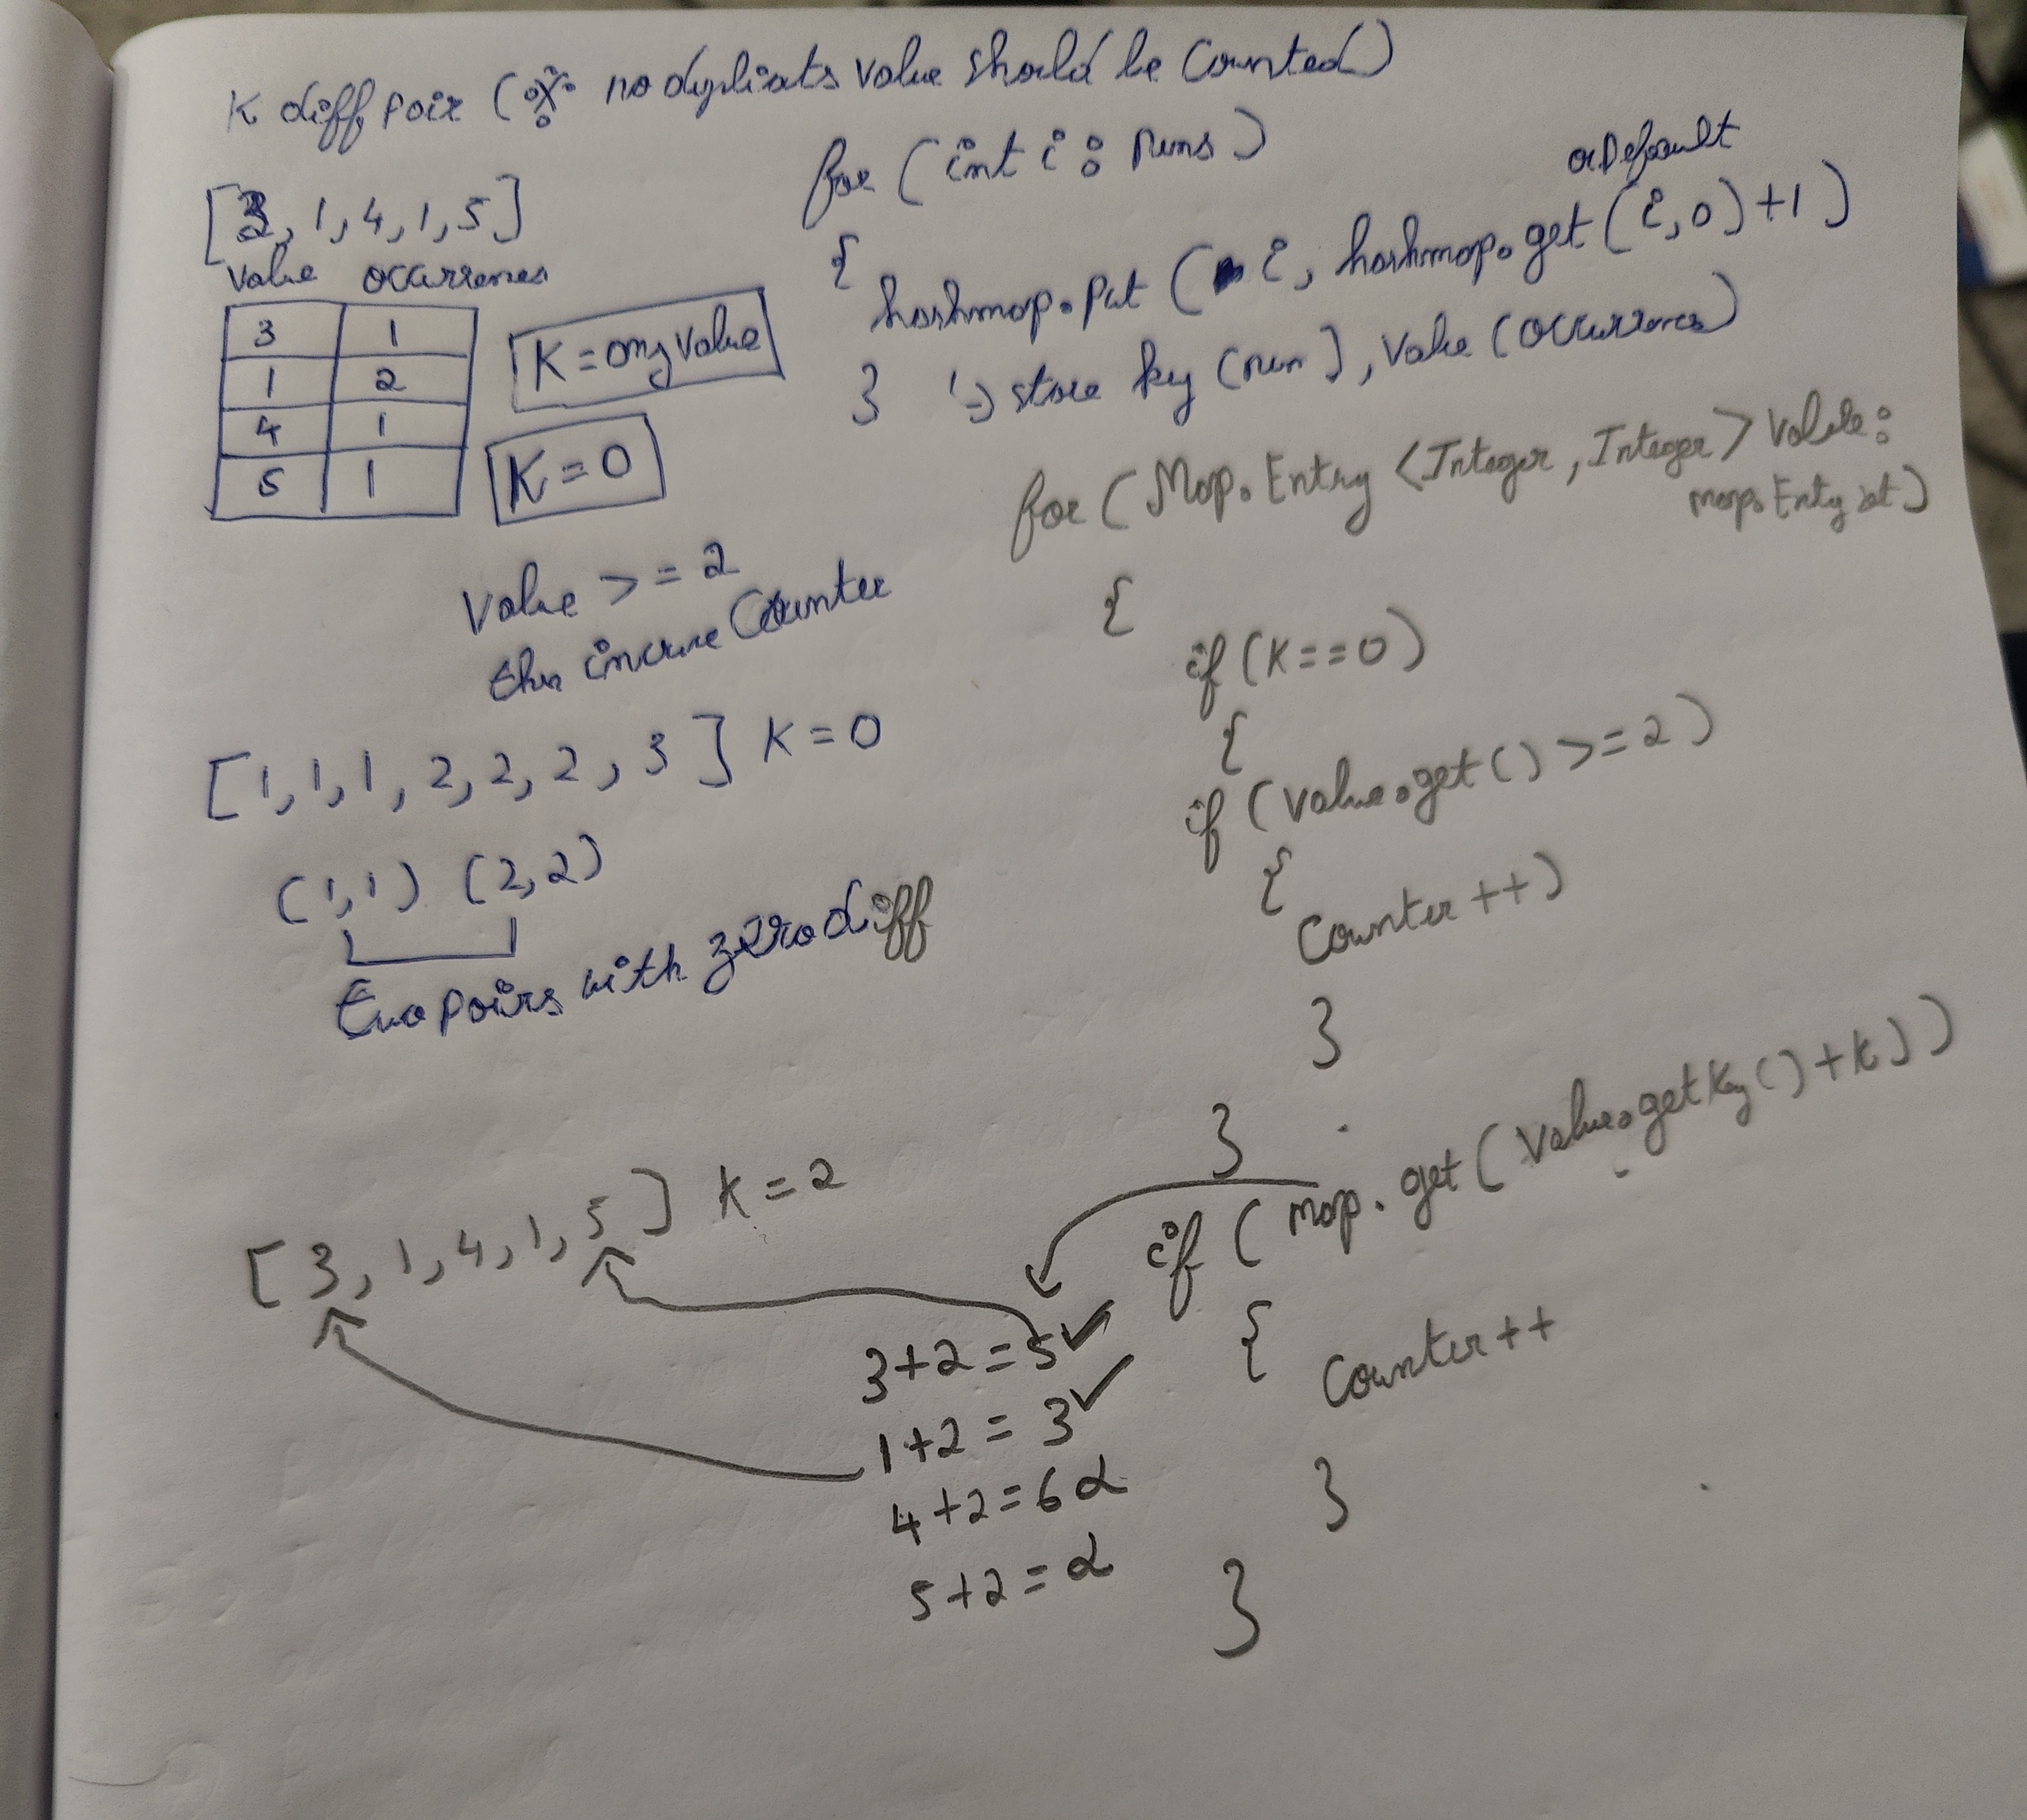 K diff pair (※ no duplicats value should be Counted)
[3, 1, 4, 1, 5]
value occurrences
3 1
1 2
4 1
5 1
K = any value
K = 0
value >= 2
then increase Counter
[1, 1, 1, 2, 2, 2, 3] K = 0
(1,1) (2,2)
two pairs with zero diff
[3, 1, 4, 1, 5] K = 2
3+2=5 ✓
1+2=3 ✓
4+2=6
5+2=
for (int i : nums)
{
orDefault
hashmap.put (i, hashmap.get(i,0)+1)
} ↳ store key (num), value (occurrences)
for (Map.Entry <Integer, Integer> value:
map.Entry set)
{
if (K==0)
{
if (value.get() >=2)
{
Counter ++)
}
}
if (map.get(value.getKey()+k))
{
Counter++
}
}